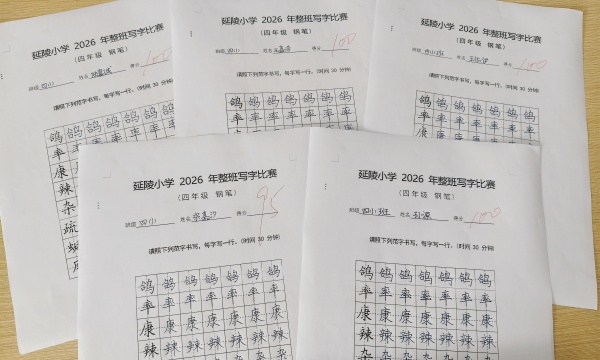 延陵小学 2026 年整班写字比赛
（四年级 钢笔）
班级 四小 姓名 得分 100
请照下列范字书写，每字写一行。（时间 30 分钟）
鸽 鸽 鸽 鸽 鸽 鸽 鸽
率
康
辣
杂
疏
延陵小学 2026 年整班写字比赛
（四年级 钢笔）
班级 四小 姓名 得分 100
请照下列范字书写，每字写一行。（时间 30 分钟）
鸽 鸽 鸽 鸽 鸽 鸽 鸽
率 率 率 率 率 率 率
延陵小学 2026 年整班写字比赛
（四年级 钢笔）
班级 四小班 姓名 得分 100
请照下列范字书写，每字写一行。（时间 30 分钟）
鸽 鸽 鸽 鸽 鸽 鸽 鸽
率 率 率 率 率 率 率
康
延陵小学 2026 年整班写字比赛
（四年级 钢笔）
班级 四小 姓名 得分 95
请照下列范字书写，每字写一行。（时间 30 分钟）
鸽 鸽 鸽 鸽 鸽 鸽 鸽
率 率 率 率 率 率 率
康 康 康 康 康 康 康
辣 辣 辣 辣 辣 辣 辣
延陵小学 2026 年整班写字比赛
（四年级 钢笔）
班级 四小班 姓名 孙源 得分 100
请照下列范字书写，每字写一行。（时间 30 分钟）
鸽 鸽 鸽 鸽 鸽 鸽 鸽
率 率 率 率 率 率 率
康 康 康 康 康 康 康
辣 辣 辣 辣 辣 辣 辣
杂 杂 杂 杂 杂 杂 杂